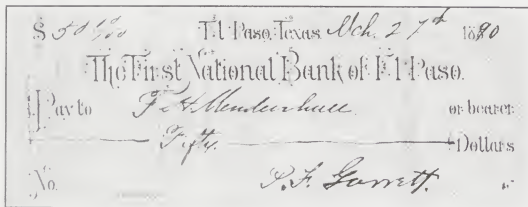 $ 50 00/100 El Paso, Texas Mch. 27th 1890
The First National Bank of El Paso.
Pay to F. H. Mendenhall or bearer
Fifty Dollars
No. P. F. Garrett.